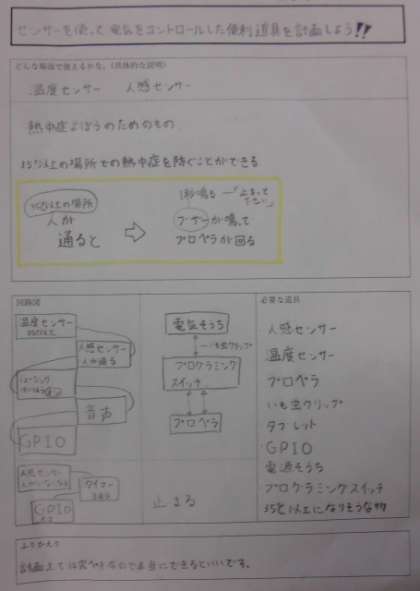 センサーを使って電気をコントロールした便利道具を計画しよう!!
どんな場面で使えるかな。(具体的な説明)
温度センサー 人感センサー
熱中症よぼうのためのもの
35℃以上の場所での熱中症を防ぐことができる
35℃以上の場所
人が
通ると
1秒鳴る
ブザーが鳴って
プロペラが回る
回路図
温度センサー
35℃以上
人感センサー
人が通る
音声
GPIO
人感センサー
タイマー
GPIO
電気そうち
いも虫クリップ
プログラミング
スイッチ
プロペラ
止まる
必要な道具
人感センサー
温度センサー
プロペラ
いも虫クリップ
タブレット
GPIO
電源そうち
プログラミングスイッチ
35℃以上になりそうな物
ふりかえり
計画上では完ぺきなので本当にできるといいです。